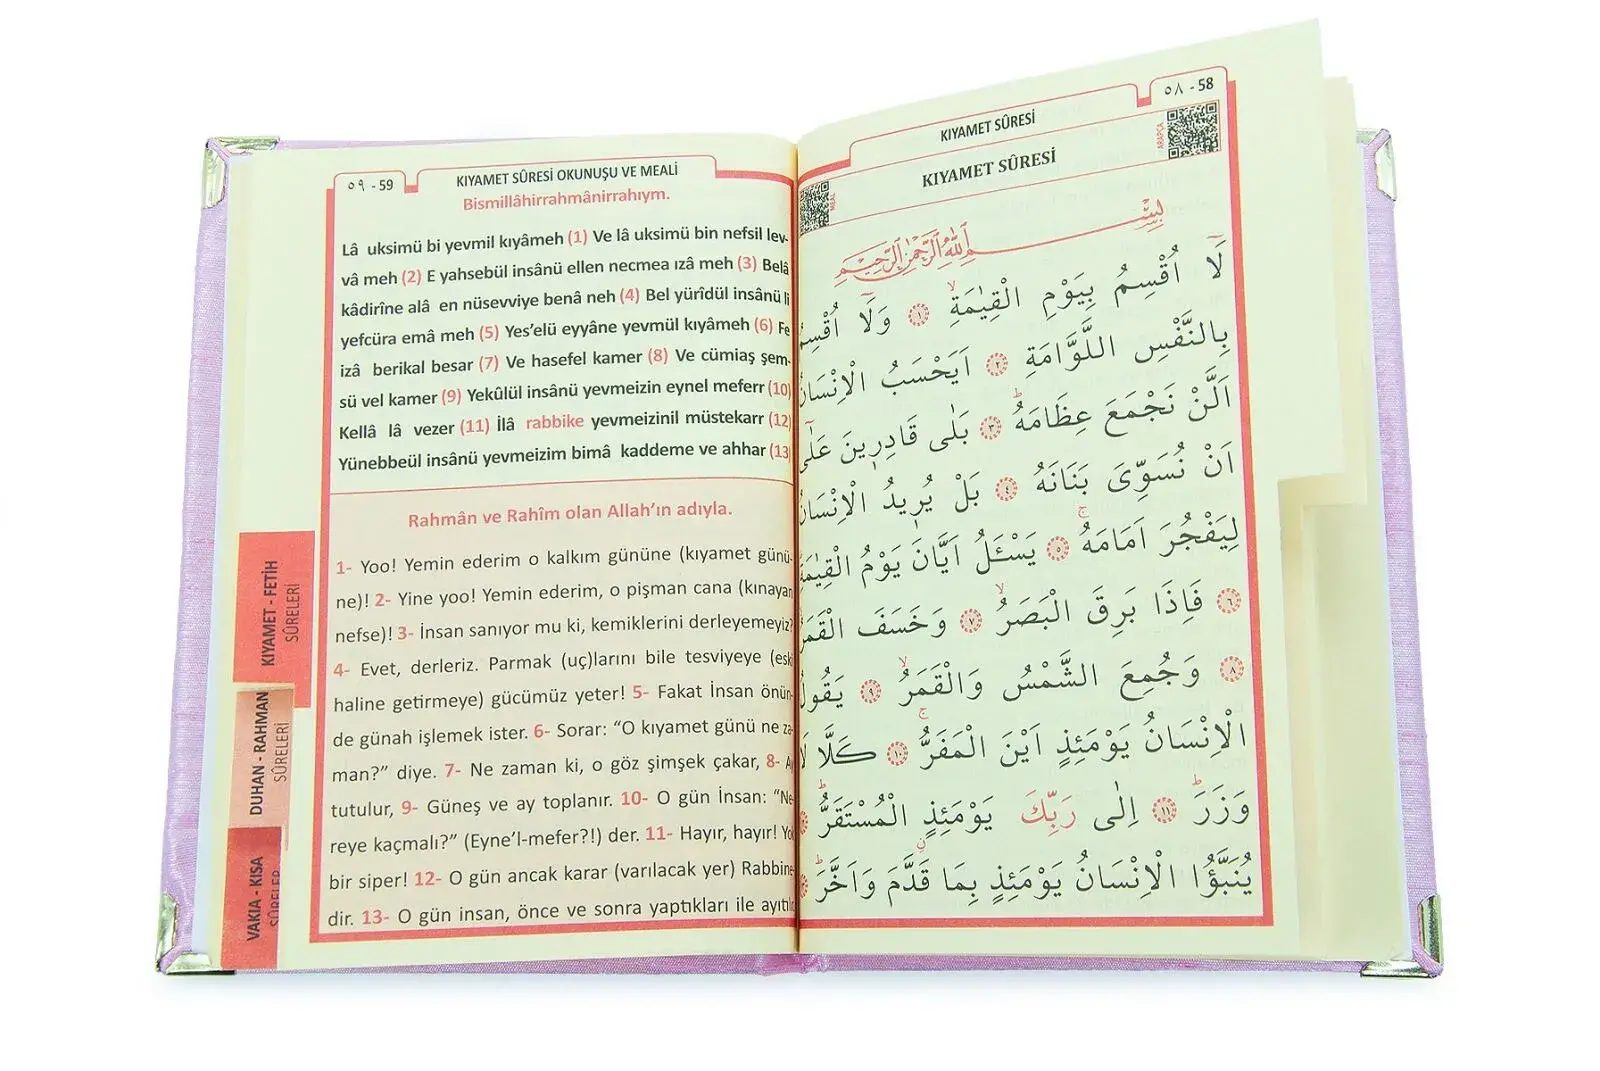 ٥٨ - 58
KIYAMET SÛRESİ
ARAPÇA
KIYAMET SÛRESİ
MEAL
بِسْمِ اللهِ الرَّحْمٰنِ الرَّحِيمِ
لَٓا اُقْسِمُ بِيَوْمِ الْقِيٰمَةِۙ ﴿١﴾ وَلَٓا اُقْسِمُ
بِالنَّفْسِ اللَّوَّامَةِ ﴿٢﴾ اَيَحْسَبُ الْاِنْسَانُ
اَلَّنْ نَجْمَعَ عِظَامَهُۜ ﴿٣﴾ بَلٰى قَادِرِينَ عَلٰٓى
اَنْ نُسَوِّىَ بَنَانَهُ ﴿٤﴾ بَلْ يُرِيدُ الْاِنْسَانُ
لِيَفْجُرَ اَمَامَهُۚ ﴿٥﴾ يَسْـَٔلُ اَيَّانَ يَوْمُ الْقِيٰمَةِ
﴿٦﴾ فَاِذَا بَرِقَ الْبَصَرُۙ ﴿٧﴾ وَخَسَفَ الْقَمَرُ
﴿٨﴾ وَجُمِعَ الشَّمْسُ وَالْقَمَرُۙ ﴿٩﴾ يَقُولُ
الْاِنْسَانُ يَوْمَئِذٍ اَيْنَ الْمَفَرُّۚ ﴿١٠﴾ كَلَّا لَا
وَزَرَۜ ﴿١١﴾ اِلٰى رَبِّكَ يَوْمَئِذٍ الْمُسْتَقَرُّۜ
يُنَبَّؤُا الْاِنْسَانُ يَوْمَئِذٍ بِمَا قَدَّمَ وَاَخَّرَۜ
٥٩ - 59
KIYAMET SÛRESİ OKUNUŞU VE MEALİ
Bismillâhirrahmânirrahıym.
Lâ uksimü bi yevmil kıyâmeh (1) Ve lâ uksimü bin nefsil lev-
vâ meh (2) E yahsebül insânü ellen necmea ızâ meh (3) Belâ
kâdirîne alâ en nüsevviye benâ neh (4) Bel yürîdül insânü li
yefcüra emâ meh (5) Yes'elü eyyâne yevmül kıyâmeh (6) Fe
izâ berikal besar (7) Ve hasefel kamer (8) Ve cümiaş şem-
sü vel kamer (9) Yekûlül insânü yevmeizin eynel meferr (10)
Kellâ lâ vezer (11) İlâ rabbike yevmeizinil müstekarr (12)
Yünebbeül insânü yevmeizim bimâ kaddeme ve ahhar (13)
Rahmân ve Rahîm olan Allah'ın adıyla.
1- Yoo! Yemin ederim o kalkım gününe (kıyamet günü-
ne)! 2- Yine yoo! Yemin ederim, o pişman cana (kınayan
nefse)! 3- İnsan sanıyor mu ki, kemiklerini derleyemeyiz?
4- Evet, derleriz. Parmak (uç)larını bile tesviyeye (eski
haline getirmeye) gücümüz yeter! 5- Fakat İnsan önün-
de günah işlemek ister. 6- Sorar: "O kıyamet günü ne za-
man?" diye. 7- Ne zaman ki, o göz şimşek çakar, 8- Ay
tutulur, 9- Güneş ve ay toplanır. 10- O gün İnsan: "Ne-
reye kaçmalı?" (Eyne'l-mefer?!) der. 11- Hayır, hayır! Yok
bir siper! 12- O gün ancak karar (varılacak yer) Rabbine-
dir. 13- O gün insan, önce ve sonra yaptıkları ile ayıtılır.
KIYAMET - FETİH
SÛRELERİ
DUHAN - RAHMAN
SÛRELERİ
VAKIA - KISA
SÛRELER